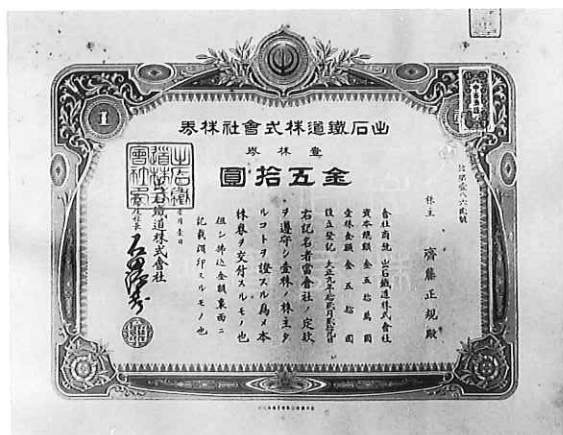 出石鐵道株式會社株券
壹株券
金五拾圓
株主 齋藤正規殿
會社商號 出石鐵道株式會社
資本總額 金五拾萬圓
壹株金額 金五拾圓
設立登記 大正九年
右記名者當會社ノ定款
ヲ遵守シ壹株ノ株主タ
ルコトヲ證スル爲メ本
株券ヲ交付スルモノ也
但シ拂込金額裏面ニ
記載調印スルモノ也
出石鐵道株式會社
1